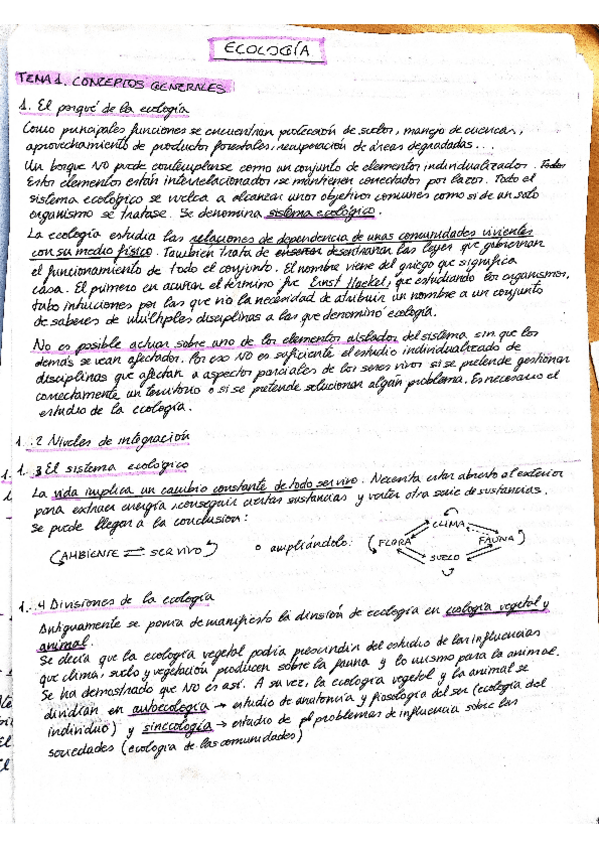 ECOLOGÍA
TEMA 1. CONCEPTOS GENERALES
1. El porqué de la ecología
Como principales funciones se encuentran protección de suelos, manejo de cuencas,
aprovechamiento de productos forestales, recuperación de áreas degradadas...
Un bosque NO puede contemplarse como un conjunto de elementos individualizados. Todos
Estos elementos están interrelacionados, se mantienen conectados por lazos. Todo el
sistema ecológico se vuelca a alcanzar unos objetivos comunes como si de un solo
organismo se tratase. Se denomina sistema ecológico.
La ecología estudia las relaciones de dependencia de unas comunidades vivientes
con su medio físico. También trata de enseñar desentrañar las leyes que gobiernan
el funcionamiento de todo el conjunto. El nombre viene del griego que significa
casa. El primero en acuñar el término fue Ernst Haekel, que estudiando los organismos,
tubo intuiciones por las que vio la necesidad de atribuir un nombre a un conjunto
de saberes de múltiples disciplinas a las que denominó ecología.
No es posible actuar sobre uno de los elementos aislados del sistema sin que los
demás se vean afectados. Por eso NO es suficiente el estudio individualizado de
disciplinas que afectan a aspectos parciales de los seres vivos si se pretende gestionar
correctamente un territorio o si se pretende solucionar algún problema. Es necesario el
estudio de la ecología.
1.2 Niveles de integración
1.3 El sistema ecológico
La vida implica un cambio constante de todo ser vivo. Necesita estar abierto al exterior
para extraer energía, conseguir ciertas sustancias y verter otra serie de sustancias.
Se puede llegar a la conclusión:
AMBIENTE ⇌ SER VIVO o ampliándolo: FLORA CLIMA FAUNA SUELO
1.4 Divisiones de la ecología
Antiguamente se ponía de manifiesto la división de ecología en ecología vegetal y
animal.
Se decía que la ecología vegetal podía prescindir del estudio de las influencias
que clima, suelo y vegetación producen sobre la fauna y lo mismo para la animal.
Se ha demostrado que NO es así. A su vez, la ecología vegetal y la animal se
dividían en autoecología → estudio de anatomía y fisiología del ser (ecología del
individuo) y sinecología → estudio de problemas de influencia sobre las
sociedades (ecología de las comunidades)